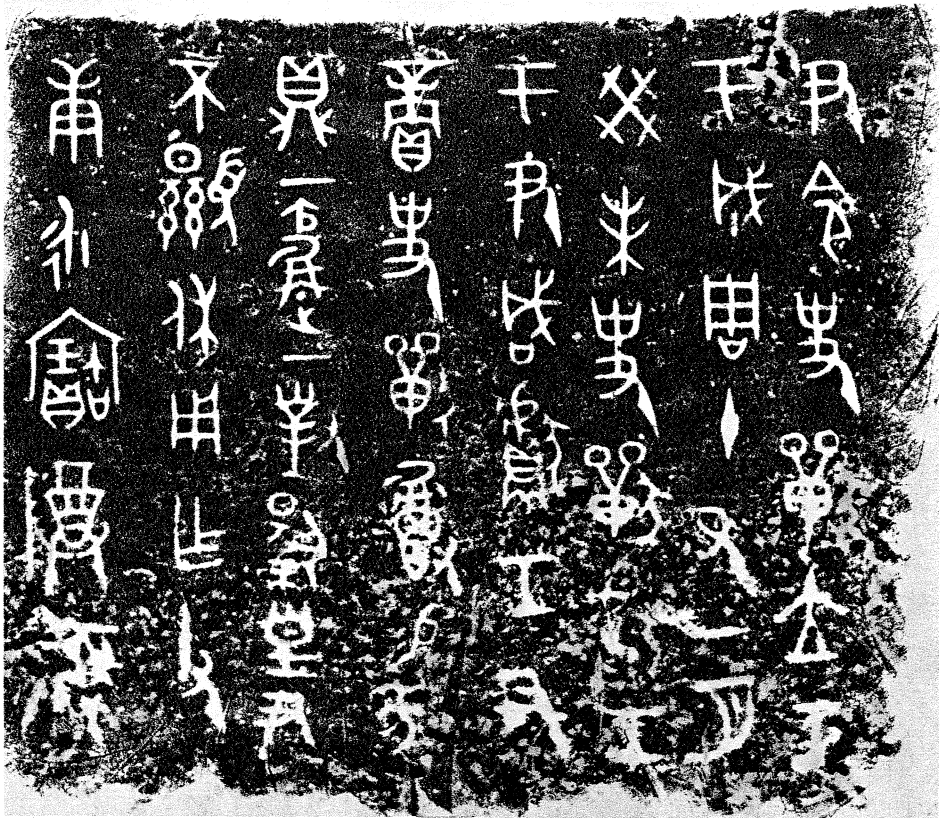 尹令史獸立工
于成周十又一月
癸未史獸獻工
于尹咸獻工尹
賞史獸易豕
鼎一爵一對揚皇尹
不顯休用乍父
庚永寶尊彝